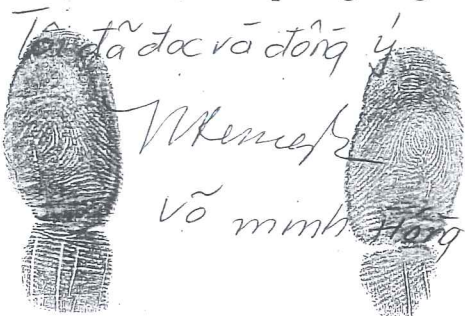 Tôi đã đọc và đồng ý
Võ minh Hồng